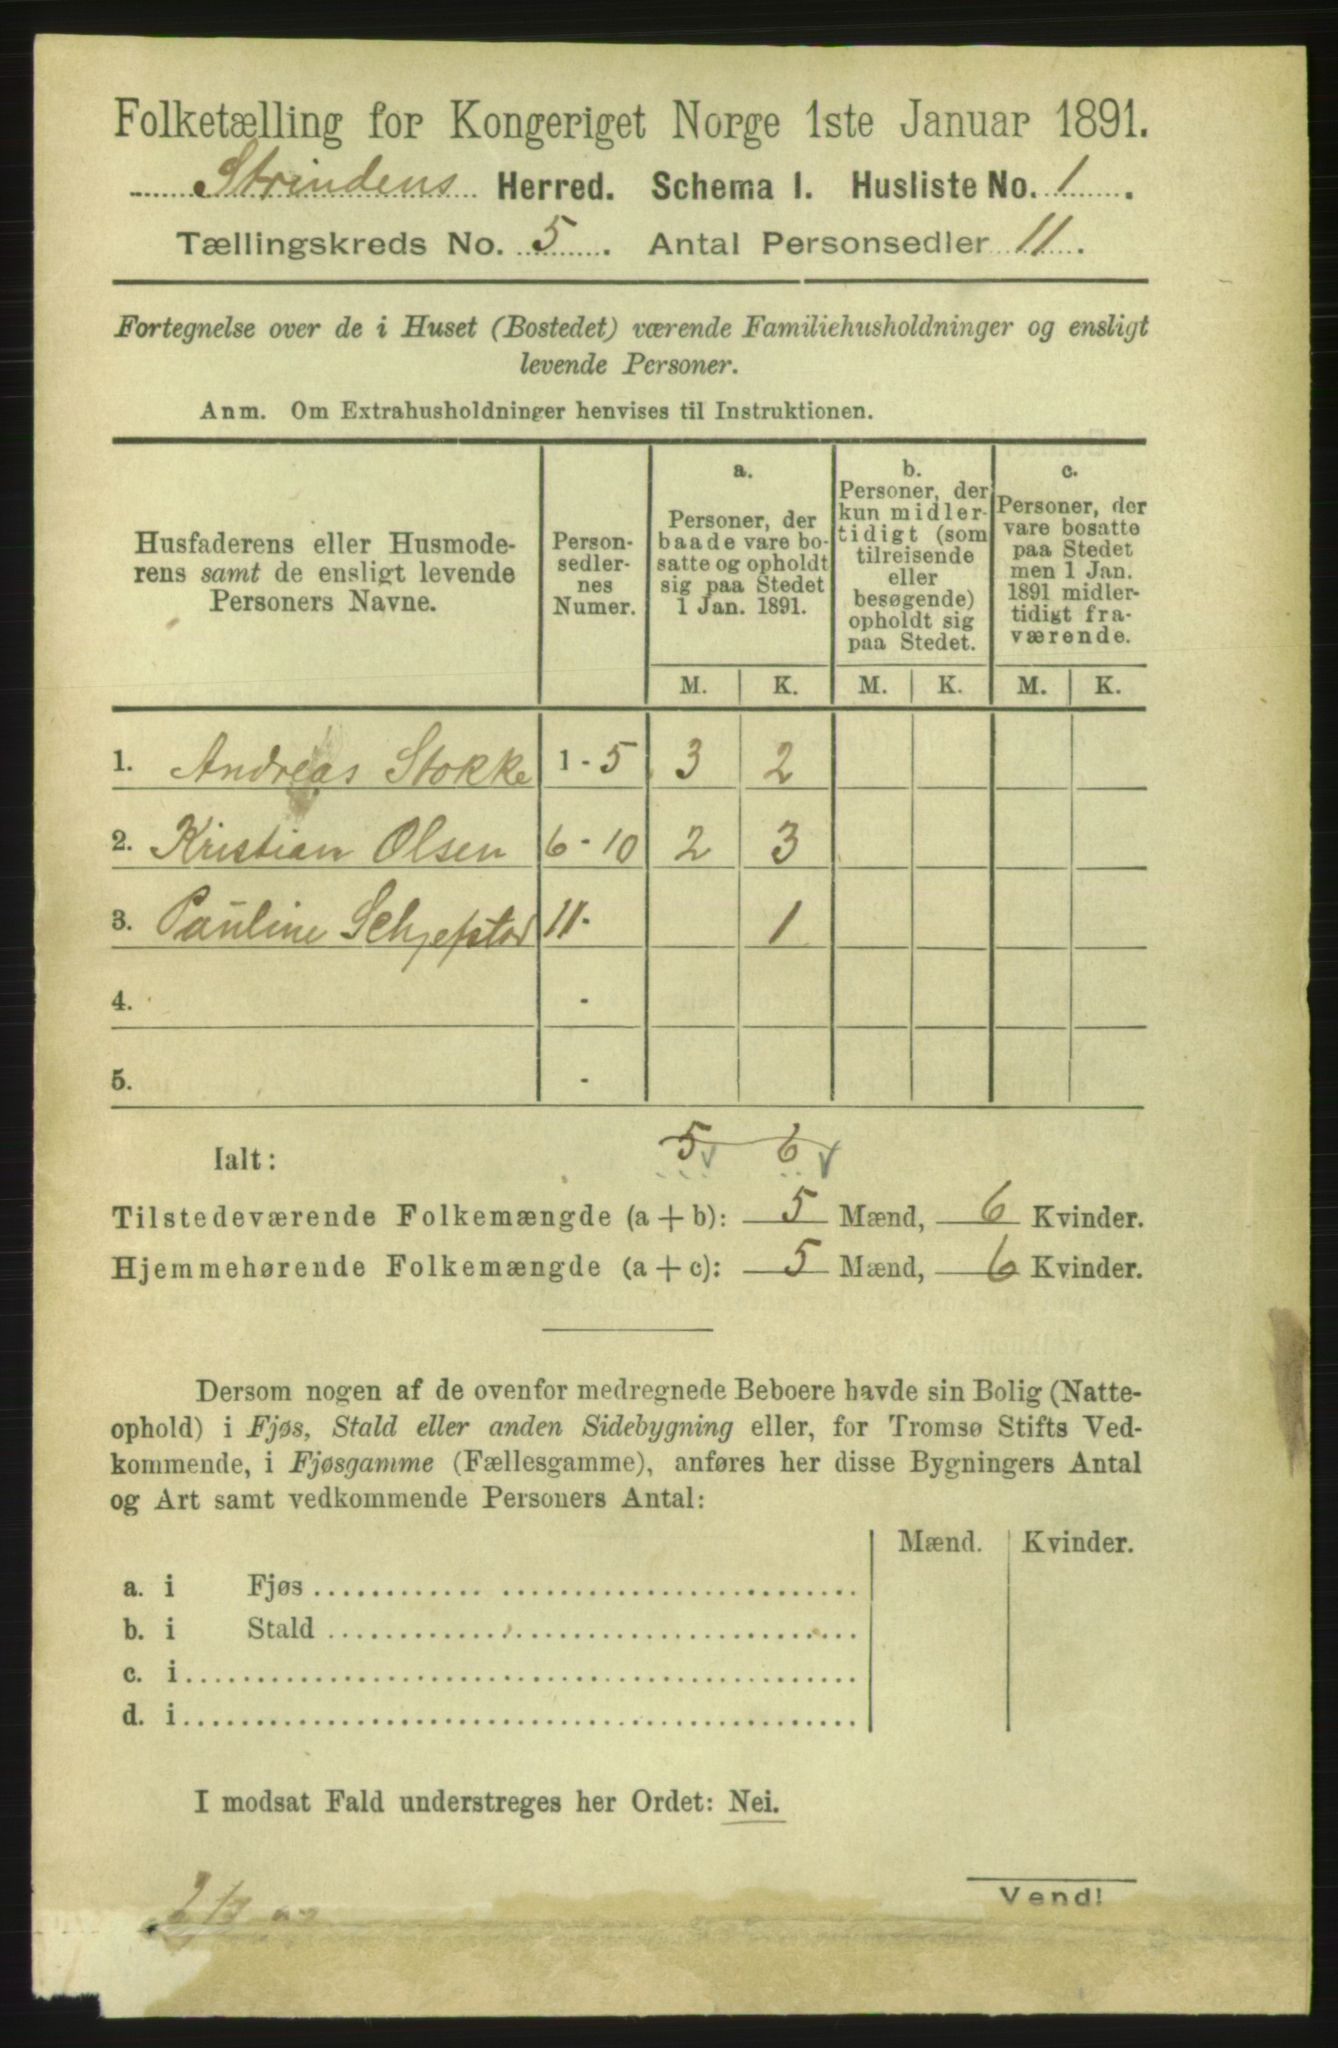 Folketælling for Kongeriget Norge 1ste Januar 1891.
Strindens Herred. Schema I. Husliste No. 1.
Tællingskreds No. 5. Antal Personsedler 11.
Fortegnelse over de i Huset (Bostedet) værende Familiehusholdninger og ensligt
levende Personer.
Anm. Om Extrahusholdninger henvises til Instruktionen.
Husfaderens eller Husmode-
rens samt de ensligt levende
Personers Navne.
Person-
sedler-
nes
Numer.
a.
Personer, der
baade vare bo-
satte og opholdt
sig paa Stedet
1 Jan. 1891.
b.
Personer, der
kun midler-
tidigt (som
tilreisende
eller
besøgende)
opholdt sig
paa Stedet.
c.
Personer, der
vare bosatte
paa Stedet
men 1 Jan.
1891 midler-
tidigt fra-
værende.
M. K. M. K. M. K.
1. Andreas Stokke 1-5 3 2
2. Kristian Olsen 6-10 2 3
3. Pauline Schjefstad 11- 1
4. -
5. -
Ialt: 5 6
Tilstedeværende Folkemængde (a + b): 5 Mænd, 6 Kvinder.
Hjemmehørende Folkemængde (a + c): 5 Mænd, 6 Kvinder.
Dersom nogen af de ovenfor medregnede Beboere havde sin Bolig (Natte-
ophold) i Fjøs, Stald eller anden Sidebygning eller, for Tromsø Stifts Ved-
kommende, i Fjøsgamme (Fællesgamme), anføres her disse Bygningers Antal
og Art samt vedkommende Personers Antal:
Mænd. Kvinder.
a. i Fjøs
b. i Stald
c. i
d. i
I modsat Fald understreges her Ordet: Nei.
Vend!